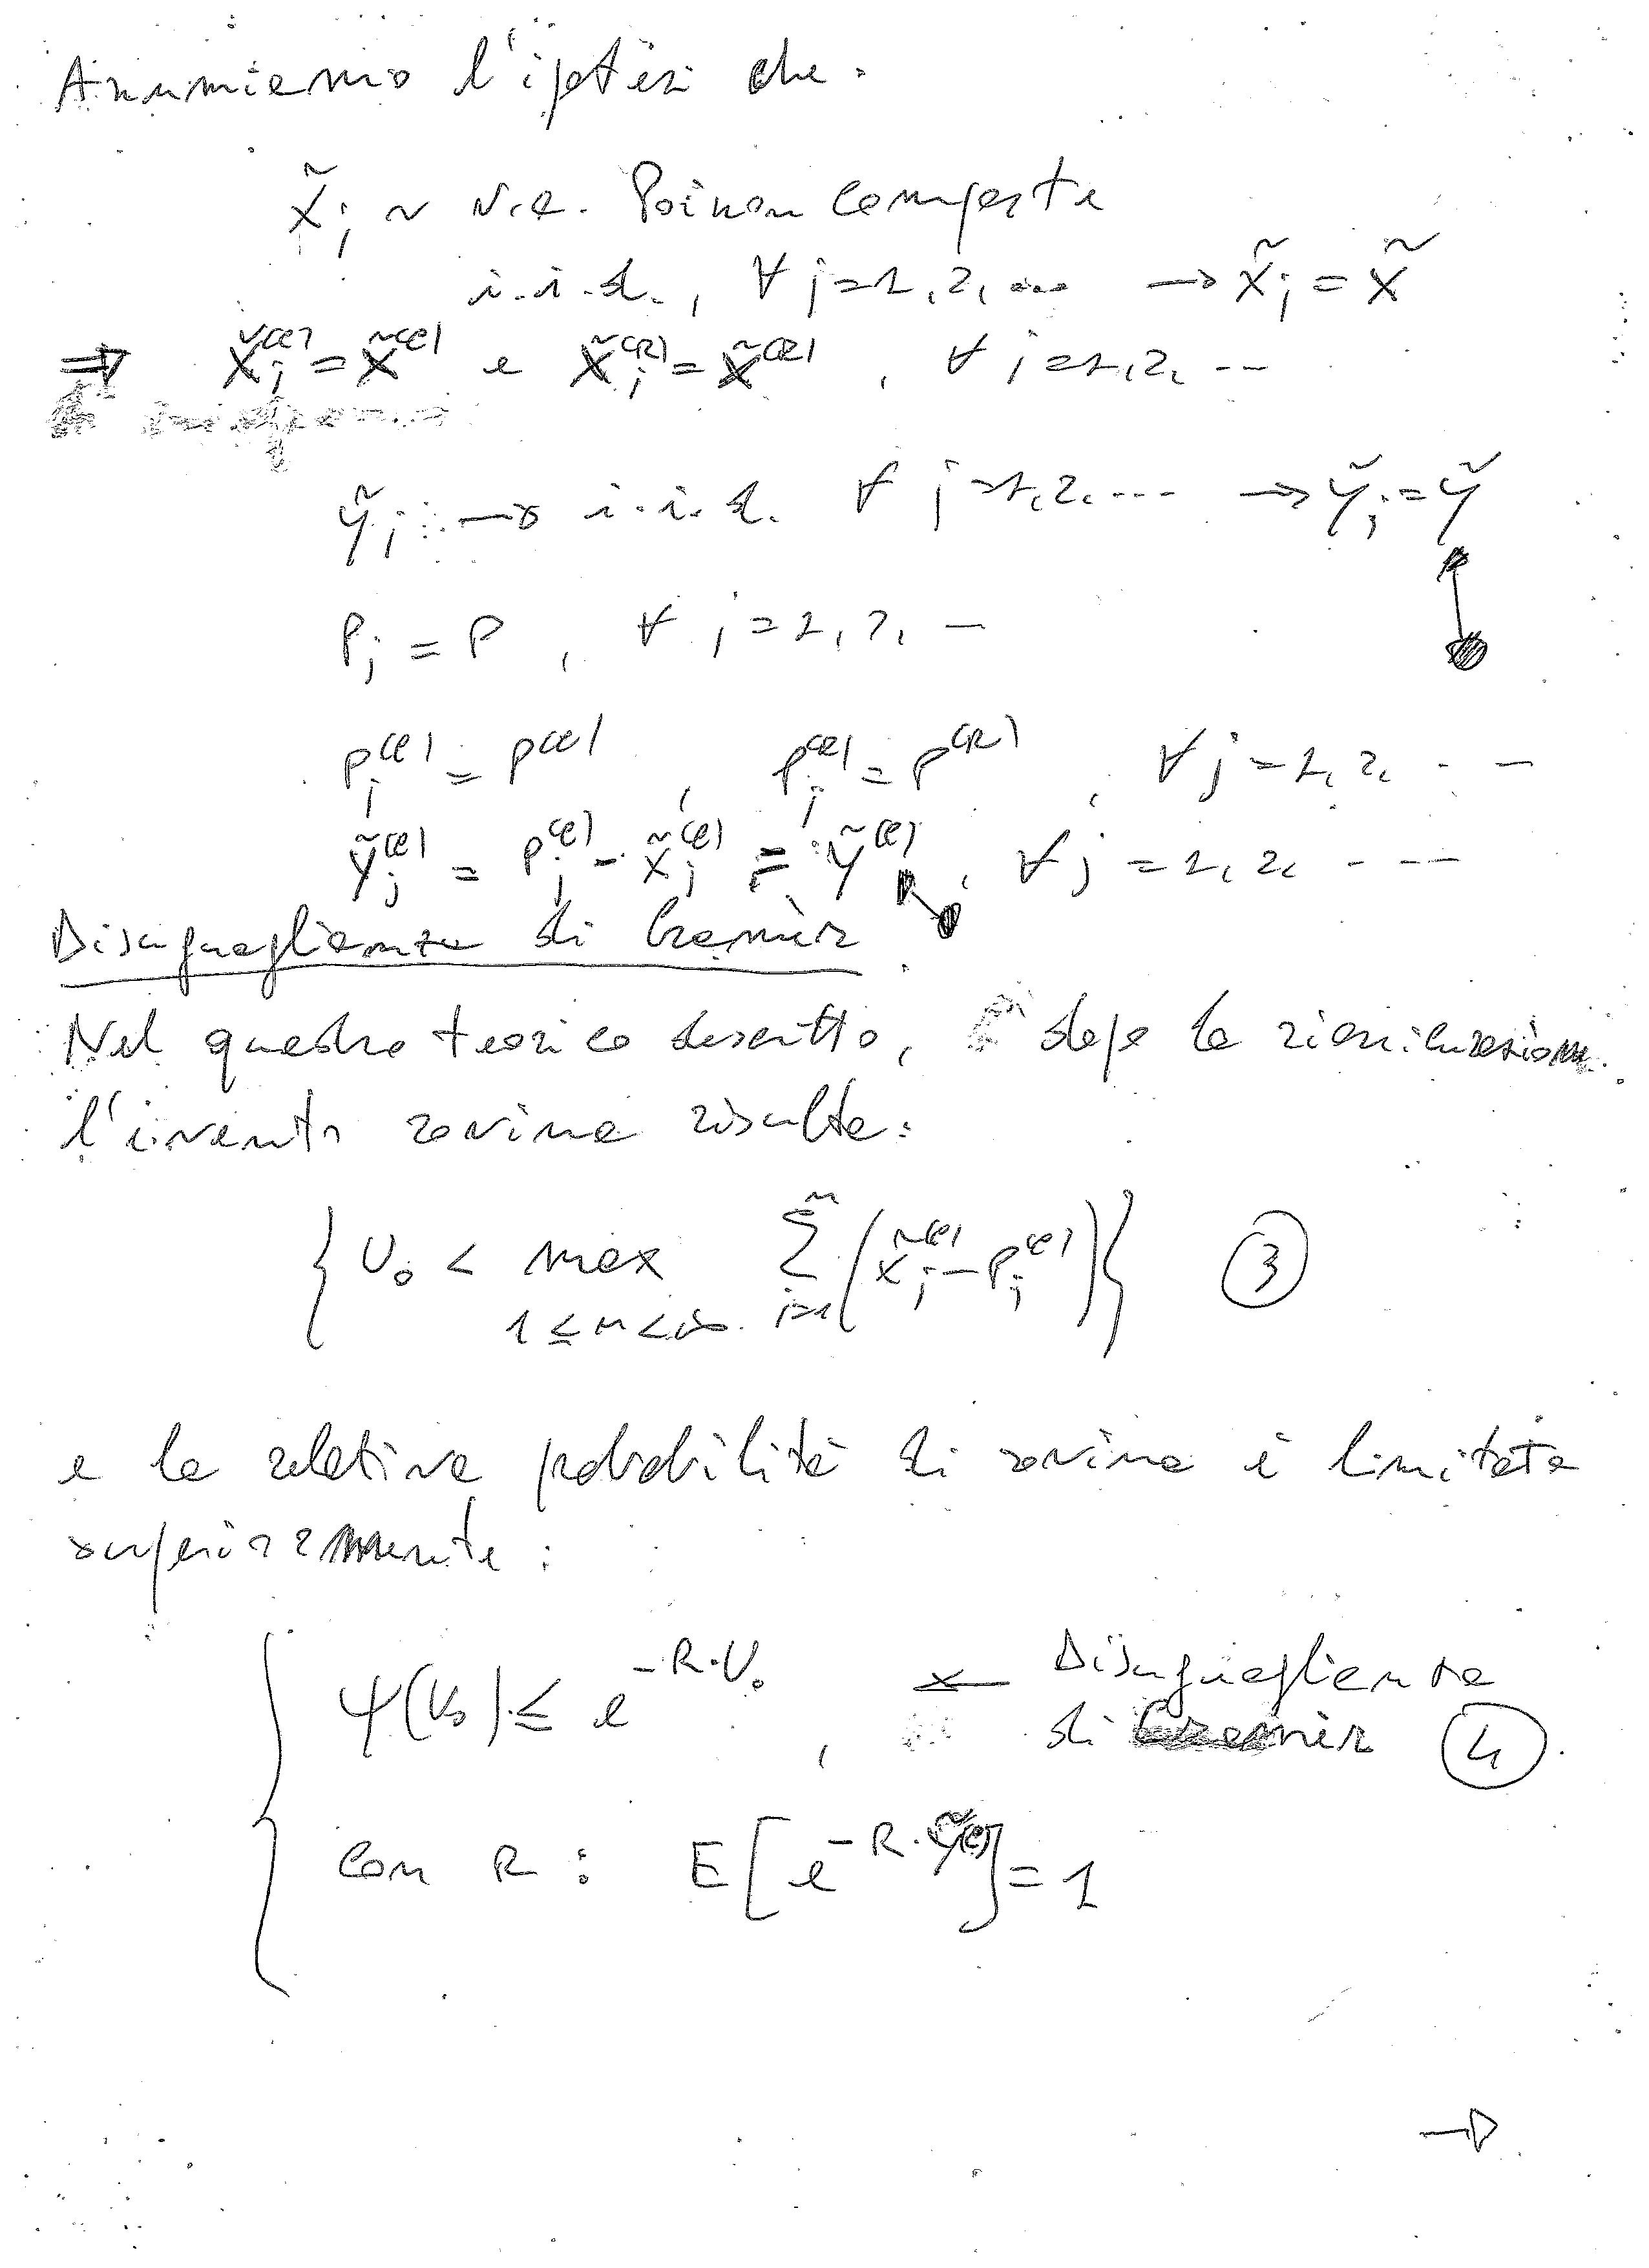 Assumiamo l'ipotesi che:
X̃_j ~ v.a. Poisson composta
i.i.d., ∀ j=1,2,... → X̃_j = X̃
⇒ X̃_j^(c) = X̃^(c) e X̃_j^(R) = X̃^(R), ∀ j=1,2,...
Ỹ_j → i.i.d. ∀ j=1,2,... → Ỹ_j = Ỹ
P_j = P, ∀ j=1,2,...
P_j^(c) = P^(c), P_j^(R) = P^(R), ∀ j=1,2,...
Ỹ_j^(c) = P_j^(c) - X̃_j^(c) = Ỹ^(c), ∀ j=1,2,...
Disuguaglianza di Cramèr
Nel quadro teorico descritto, dopo la riassicurazione
l'evento rovina risulta:
{ U_0 < max_{1≤n<∞} Σ_{j=1}^n (X̃_j^(c) - P_j^(c)) } (3)
e la relativa probabilità di rovina è limitata
superiormente:
ψ(U_0) ≤ e^{-R·U_0}, ← Disuguaglianza
di Cramèr (4)
con R : E[e^{-R·Ỹ^(c)}] = 1
→